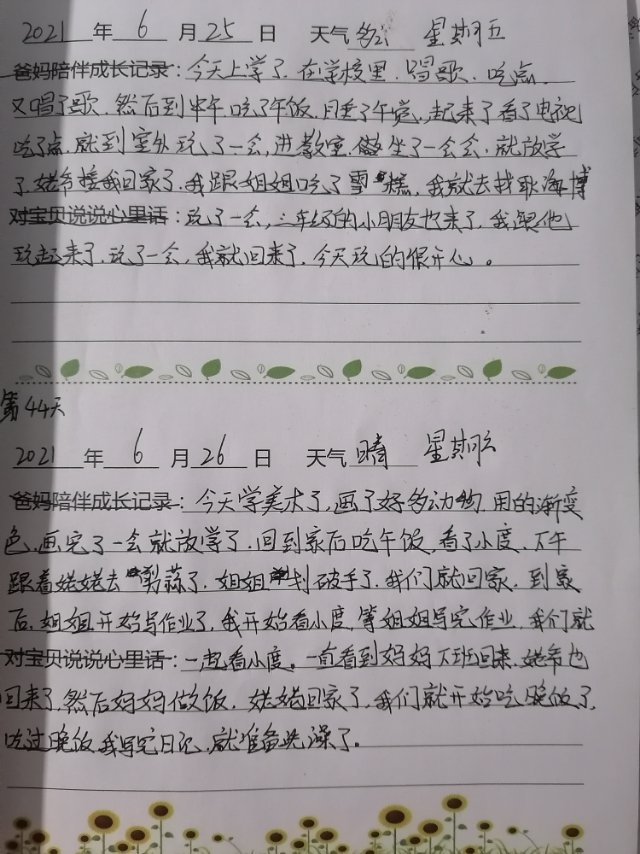 2021 年 6 月 25 日 天气 多云 星期五
爸妈陪伴成长记录：今天上学了，在学校里，唱歌，吃点，
又唱了歌，然后到中午吃了午饭，睡了午觉，起来了看了电视
吃了点，就到室外玩了一会，进教室，做坐了一会会，就放学
了，姥爷接我回家了，我跟姐姐吃了雪糕，我就去找耿海博
对宝贝说说心里话：玩了一会，三年级的小朋友也来了，我跟他
玩起来了，玩了一会，我就回来了，今天玩的很开心。
第44天
2021 年 6 月 26 日 天气 晴 星期六
爸妈陪伴成长记录：今天学美术了，画了好多动物，用的渐变
色，画完了一会就放学了，回到家后吃午饭，看了小度，下午
跟着姥姥去剪蒜了，姐姐划破手了，我们就回家，到家
后，姐姐开始写作业了，我开始看小度，等姐姐写完作业，我们就
对宝贝说说心里话：一起看小度。一直看到妈妈下班回来，姥爷也
回来了，然后妈妈做饭，姥姥回家了，我们就开始吃晚饭了，
吃过晚饭，我写完日记，就准备洗澡了。